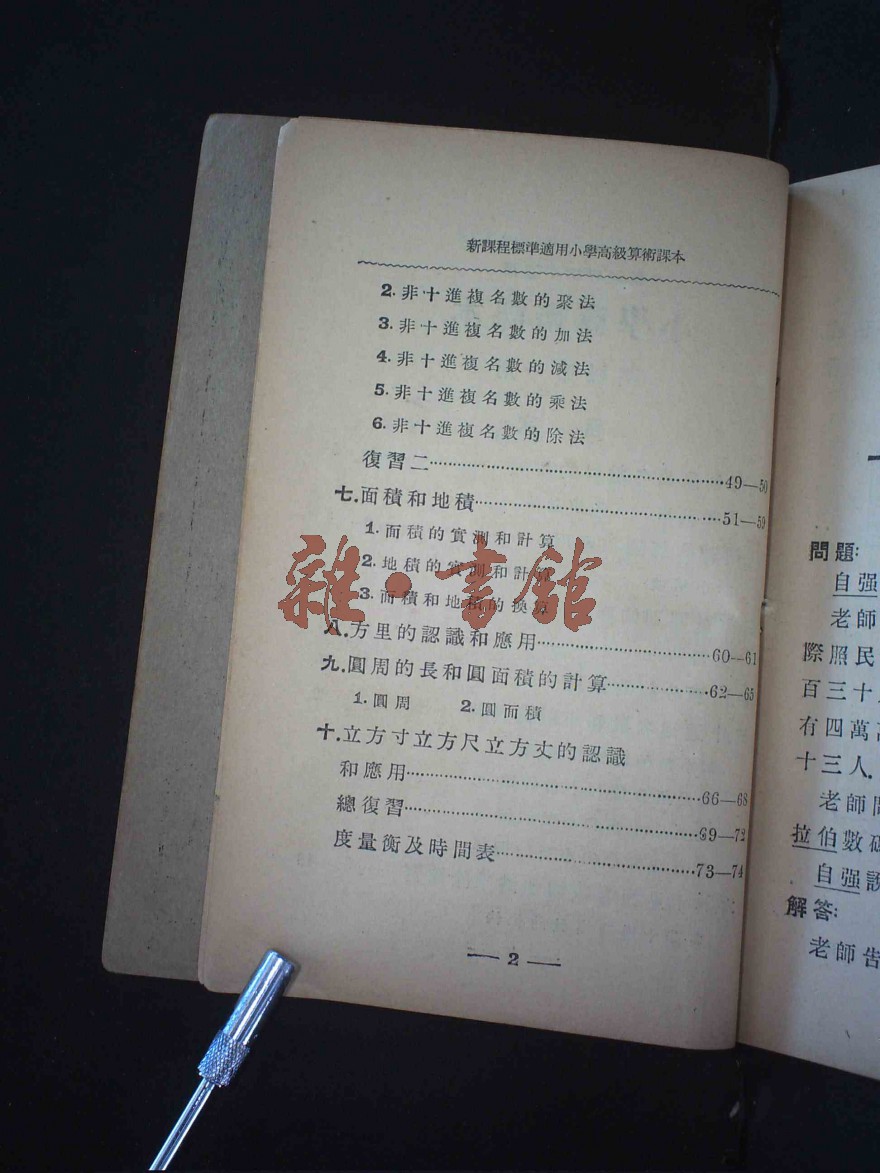 新課程標準適用小學高級算術課本
2. 非十進複名數的聚法
3. 非十進複名數的加法
4. 非十進複名數的減法
5. 非十進複名數的乘法
6. 非十進複名數的除法
復習二……49—50
七.面積和地積……51—59
1. 面積的實測和計算
2. 地積的實測和計算
3. 面積和地積的換算
八.方里的認識和應用……60—61
九.圓周的長和圓面積的計算……62—65
1. 圓周 2. 圓面積
十.立方寸立方尺立方丈的認識
和應用……66—68
總復習……69—72
度量衡及時間表……73—74
— 2 —
雜·書館
問題:
自强
老師
際照民
百三十
有四萬
十三人.
老師
拉伯數
自强說
解答:
老師告